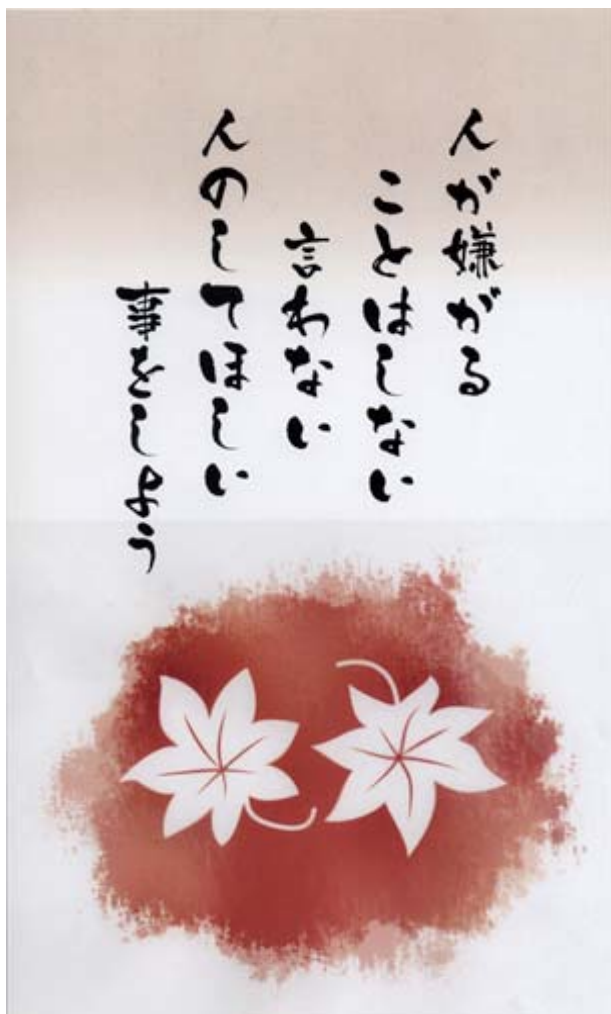 人が嫌がる
ことはしない
言わない
人のしてほしい
事をしよう